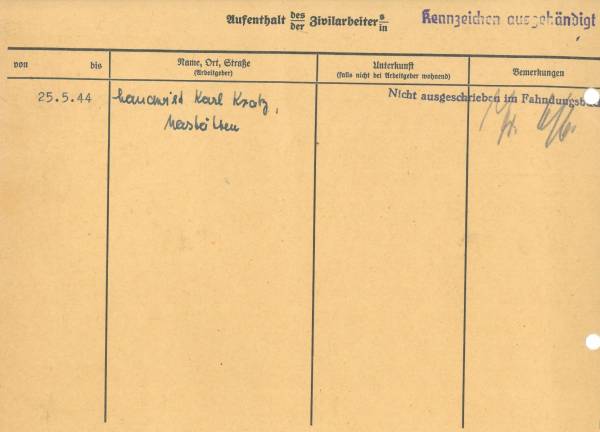 Aufenthalt des/der Zivilarbeiters/in
Kennzeichen ausgehändigt
von bis
Name, Ort, Straße
(Arbeitgeber)
Unterkunft
(falls nicht bei Arbeitgeber wohnend)
Bemerkungen
25.5.44 Landwirt Karl Kratz,
Nastätten
Nicht ausgeschrieben im Fahndungsbuch